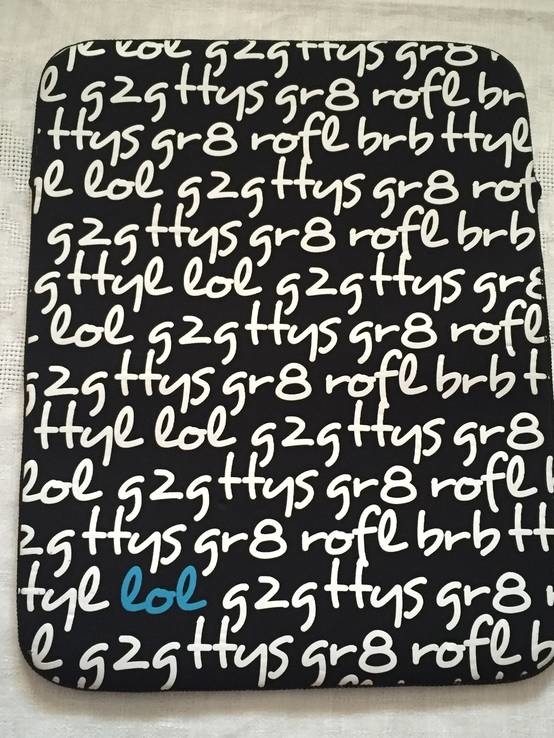 yl lol g2g ttys gr8
l g2g ttys gr8 rofl br
ttys gr8 rofl brb ttyl
yl lol g2g ttys gr8 rof
g2g ttys gr8 rofl brb
g ttyl lol g2g ttys gr8
lol g2g ttys gr8 rofl
g2g ttys gr8 rofl brb t
ttyl lol g2g ttys gr8
lol g2g ttys gr8 rofl
2g ttys gr8 rofl brb tt
tyl lol g2g ttys gr8
l g2g ttys gr8 rofl b